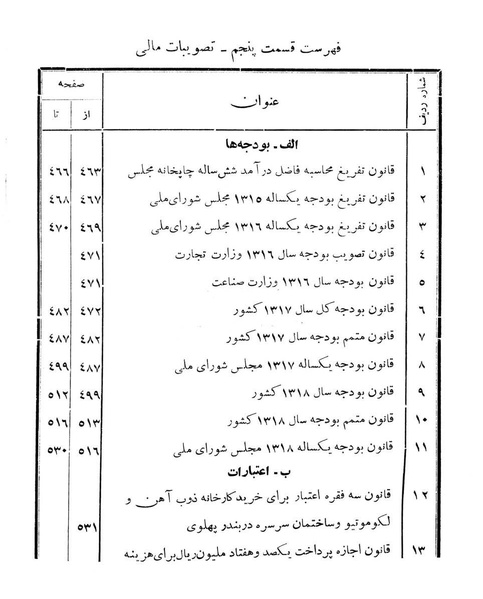 فهرست قسمت پنجم ـ تصویبات مالی
شماره ردیف عنوان صفحه
از تا
الف ـ بودجه‌ها
۱ قانون تفریغ محاسبه فاضل درآمد شش‌ساله چاپخانه مجلس ٤٦۳ ٤٦٦
۲ قانون تفریغ بودجه یکساله ۱۳۱٥ مجلس شورای‌ملی ٤٦۷ ٤٦۸
۳ قانون تفریغ بودجه یکساله ۱۳۱٦ مجلس شورای‌ملی ٤٦۹ ٤۷۰
٤ قانون تصویب بودجه سال ۱۳۱٦ وزارت تجارت ٤۷۱
٥ قانون بودجه سال ۱۳۱٦ وزارت صناعت ٤۷۱
٦ قانون بودجه کل سال ۱۳۱۷ کشور ٤۷۲ ٤۸۲
۷ قانون متمم بودجه سال ۱۳۱۷ کشور ٤۸۲ ٤۸۷
۸ قانون بودجه یکساله ۱۳۱۷ مجلس شورای ملی ٤۸۷ ٤۹۹
۹ قانون بودجه سال ۱۳۱۸ کشور ٤۹۹ ٥۱۲
۱۰ قانون متمم بودجه سال ۱۳۱۸ کشور ٥۱۳ ٥۱٦
۱۱ قانون بودجه یکساله ۱۳۱۸ مجلس شورای ملی ٥۱٦ ٥۳۰
ب ـ اعتبارات
۱۲ قانون سه فقره اعتبار برای خرید کارخانه ذوب آهن و
لکوموتیو وساختمان سرسره دربندر پهلوی ٥۳۱
۱۳ قانون اجازه پرداخت یکصد وهفتاد ملیون‌ریال‌برای‌هزینه